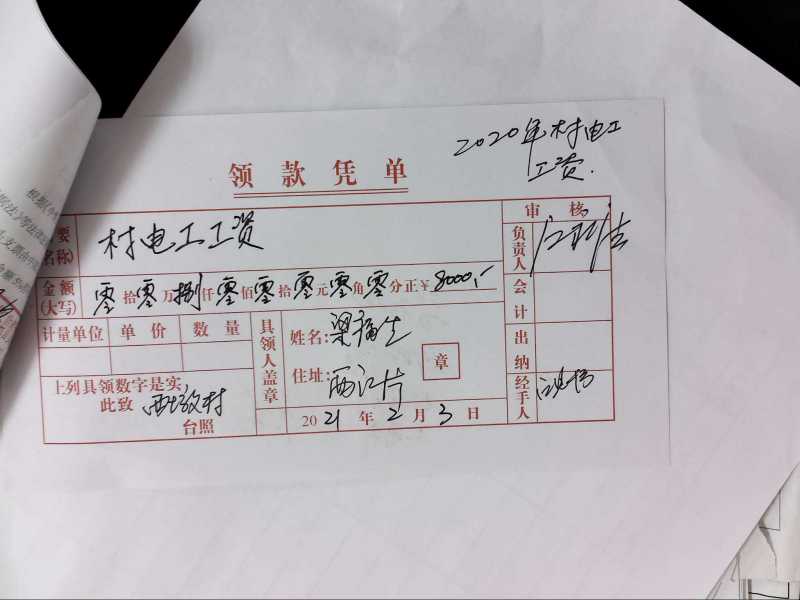 2020年村电工
工资.
领款凭单
要
名称)
村电工工资
审核
负责人
金额
(大写)
零拾零万捌仟零佰零拾零元零角零分正¥8000,-
会计
计量单位 单价 数量
具领人盖章
姓名:梁福生
住址:西江片
章
出纳
上列具领数字是实,
此致
台照
经手人
2021年2月3日